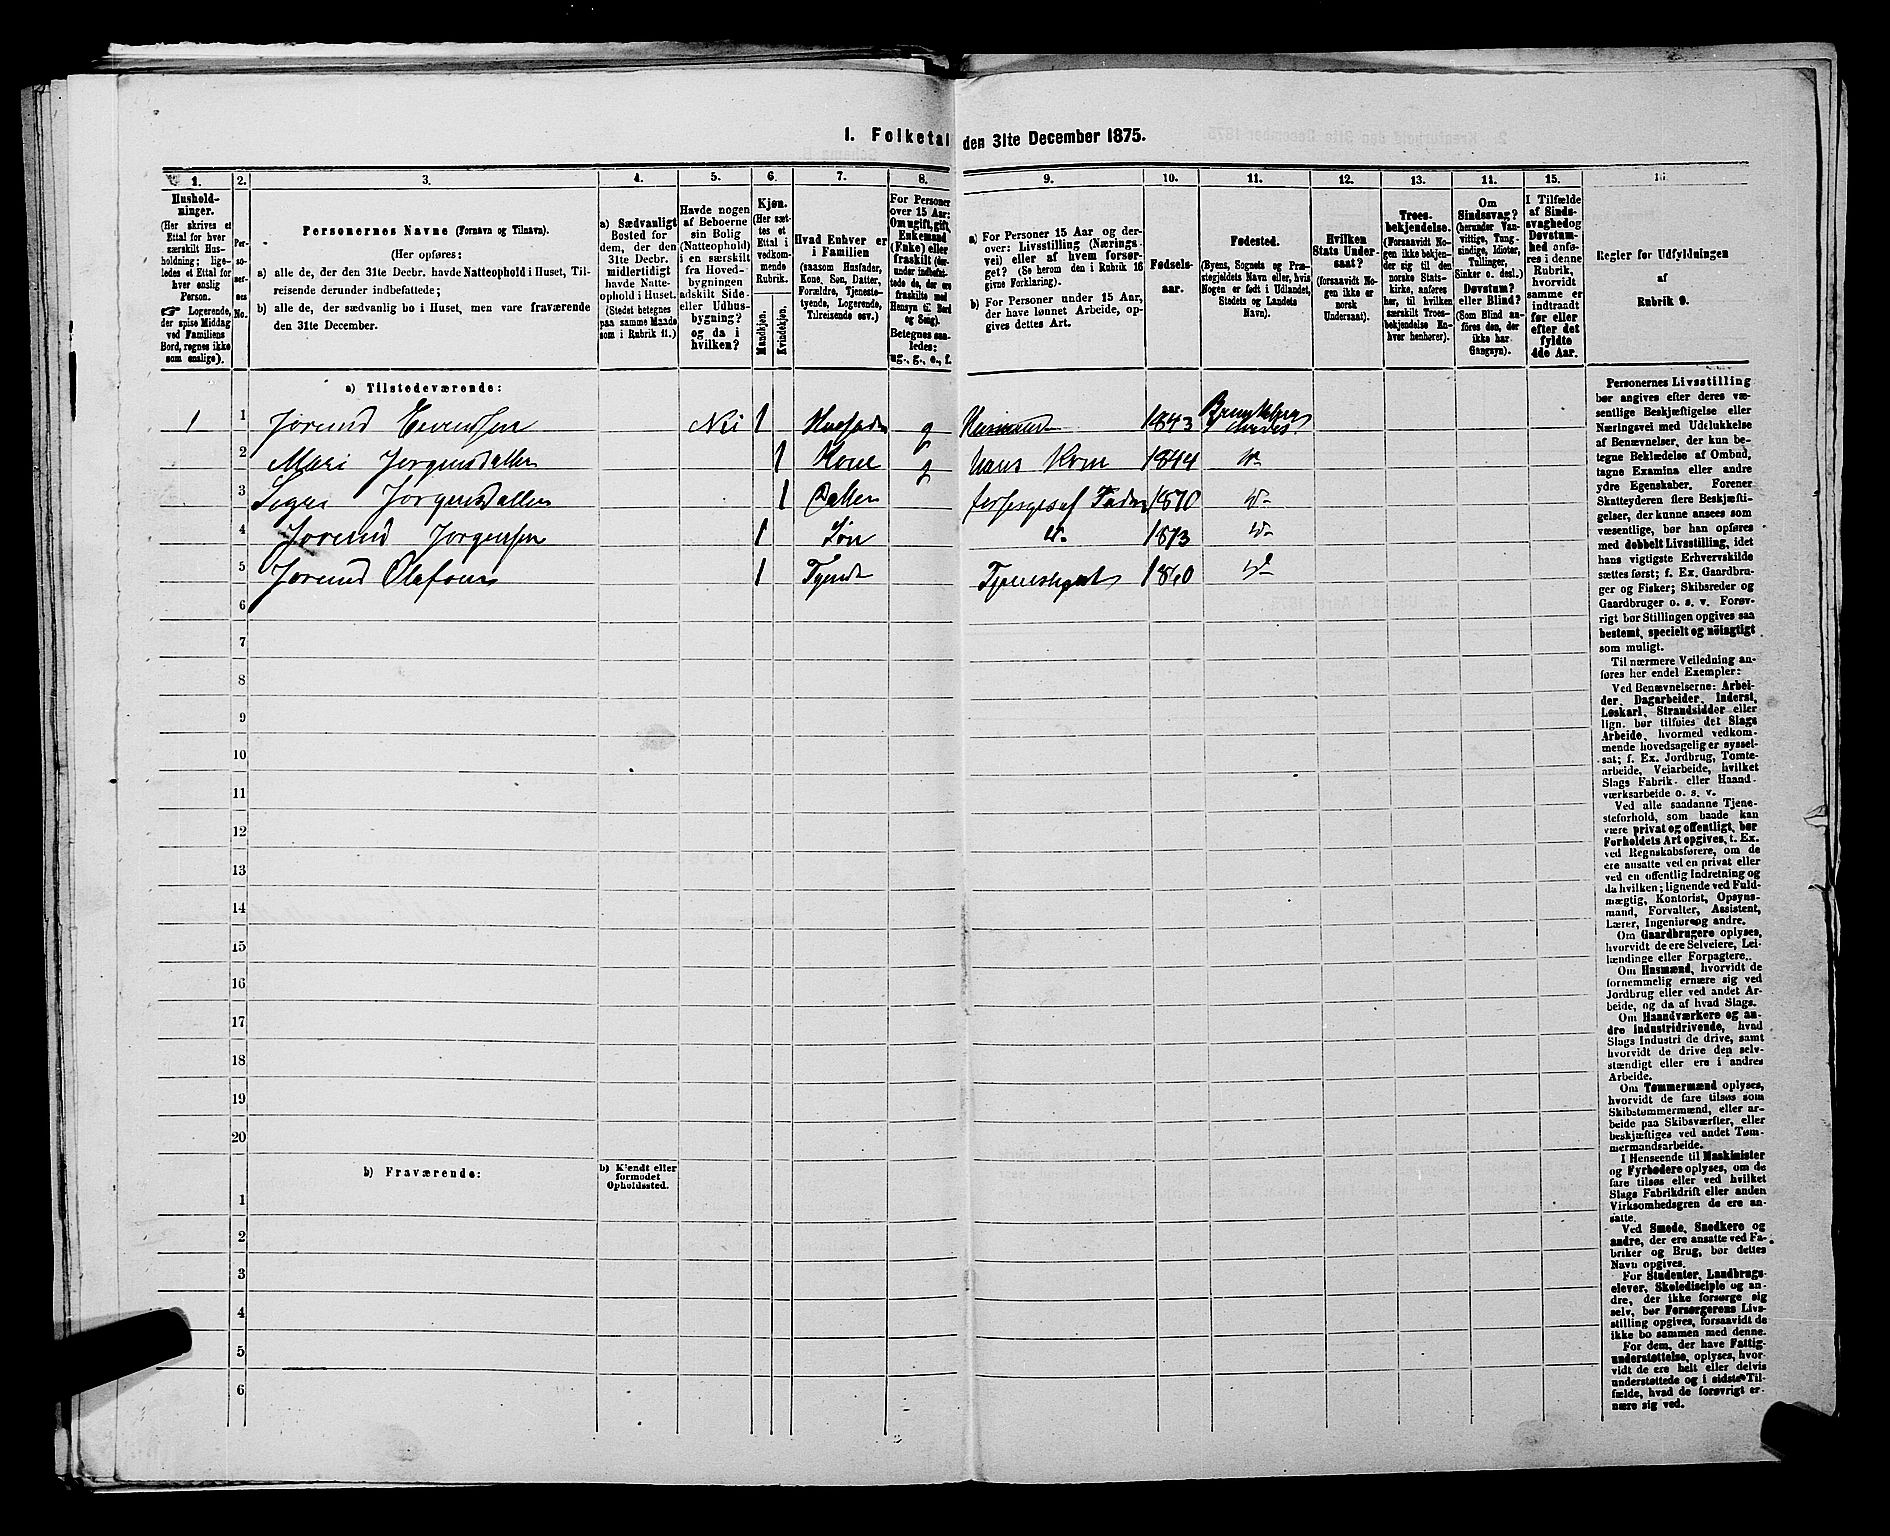 1. Folketal den 31te December 1875.
1.
2.
3.
4.
5.
6.
7.
8.
9.
10.
11.
12.
13.
11.
15.
Hushold-
ninger.
(Her skrives et
Ettal for hver
særskilt Hus-
holdning; lige-
ledes et Ettal for
hver enslig
Person.
☞ Logerende,
der spise Middag
ved Familiens
Bord, regnes ikke
som enslige).
Per-
so-
ner-
nes
No.
Personernes Navne (Fornavn og Tilnavn).
(Her opføres:
a) alle de, der den 31te Decbr. havde Natteophold i Huset, Til-
reisende derunder indbefattede;
b) alle de, der sædvanlig bo i Huset, men vare fraværende
den 31te December.
a) Sædvanligt
Bosted for
dem, der den
31te Decbr.
midlertidigt
havde Natte-
ophold i Huset.
(Stedet betegnes
paa samme Maade
som i Rubrik 11.)
Havde nogen
af Beboerne
sin Bolig
(Natteophold)
i en særskilt
fra Hoved-
bygningen
adskilt Side-
eller Udhus-
bygning?
og da i
hvilken?
Kjøn.
(Her sæt-
tes et
Ettal i
vedkom-
mende
Rubrik.
Mandkjøn.
Kvindekjøn.
Hvad Enhver er
i Familien
(saasom Husfader,
Kone, Søn, Datter,
Forældre, Tjeneste-
tyende, Logerende,
Tilreisende osv.)
For Personer
over 15 Aar:
Om ugift, gift,
Enkemand
(Enke) eller
fraskilt (der-
under indbefat-
tede de, der ere
fraskilte med
Hensyn til Bord
og Seng).
Betegnes saa-
ledes:
ug., g., e., f.
a) For Personer 15 Aar og der-
over: Livsstilling (Nærings-
vei) eller af hvem forsør-
get? (Se herom den i Rubrik 16
givne Forklaring).
b) For Personer under 15 Aar,
der have lønnet Arbeide, op-
gives dettes Art.
Fødsels-
aar.
Fødested.
(Byens, Sognets og Præ-
stegjeldets Navn eller, hvis
Nogen er født i Udlandet,
Stedets og Landets
Navn).
Hvilken
Stats Under-
saat?
(forsaavidt No-
gen ikke er
norsk
Undersaat).
Troes-
bekjendelse.
(Forsaavidt No-
gen ikke bekjen-
der sig til den
norske Stats-
kirke, anføres
her, til hvilken
særskilt Troes-
bekjendelse En-
hver henhører).
Om
Sindssvag?
(herunder Van-
vittige, Tung-
sindige, Idioter,
Tullinger,
Sinker o. desl.)
Døvstum?
eller Blind?
(Som Blind an-
føres den, der
ikke har
Gangsyn).
I Tilfælde
af Sinds-
svaghed og
Døvstum-
hed anfø-
res i denne
Rubrik,
hvorvidt
samme er
indtraadt
før eller
efter det
fyldte
4de Aar.
Regler for Udfyldningen
af
Rubrik 9.
a) Tilstedeværende:
1 1 Jørund Evensen Nei 1 Husfader g Husmand 1843 Brunkeberg
2 Mari Jørgensdatter 1 Kone g Hans Kone 1844 do
3 Jørgensdatter 1 Datter forsørges af Fader 1870 do
4 Jørund Jørgensen 1 Søn do 1873 do
5 Jørund Olafsen 1 Tyende 1860 do
6
7
8
9
10
11
12
13
14
15
16
17
18
19
20
b) Fraværende:
b) Kjendt eller
formodet
Opholdssted.
1
2
3
4
5
6
Personernes Livsstilling
bør angives efter deres væ-
sentlige Beskjæftigelse eller
Næringsvei med Udelukkelse
af Benævnelser, der kun be-
tegne Beklædelse af Ombud,
tagne Examina eller andre
ydre Egenskaber. Forener
Skatteyderen flere Beskjæfti-
gelser, der kunne ansees som
væsentlige, bør han opføres
med dobbelt Livsstilling, idet
hans vigtigste Erhvervskilde
sættes først; f. Ex. Gaardbru-
ger og Fisker; Skibsreder og
Gaardbruger o. s. v. Forøv-
rigt bør Stillingen opgives saa
bestemt, specielt og nöiagtigt
som muligt.
Til nærmere Veiledning an-
føres her endel Exempler:
Ved Benævnelserne: Arbei-
der, Dagarbeider, Inderst,
Løskarl, Strandsidder eller
lign. bør tilføies det Slags
Arbeide, hvormed vedkom-
mende hovedsagelig er syssel-
sat; f. Ex. Jordbrug, Tomte-
arbeide, Veiarbeide, hvilket
Slags Fabrik- eller Haand-
værksarbeide o. s. v.
Ved alle saadanne Tjene-
steforhold, som baade kan
være privat og offentligt, bør
Forholdets Art opgives, t. Ex.
ved Regnskabsførere, om de
ere ansatte ved en privat eller
ved en offentlig Indretning og
da hvilken; lignende ved Fuld-
mægtig, Kontorist, Opsyns-
mand, Forvalter, Assistent,
Lærer, Ingeniør og andre.
Om Gaardbrugere oplyses,
hvorvidt de ere Selveiere, Lei-
lændinge eller Forpagtere.
Om Husmænd, hvorvidt de
fornemmelig ernære sig ved
Jordbrug eller ved andet Ar-
beide, og da af hvad Slags.
Om Haandværkere og an-
dre industridrivende, hvad
Slags Industri de drive, samt
hvorvidt de drive den selv-
stændigt eller ere i andres
Arbeide.
Om Tømmermænd oplyses,
hvorvidt de fare tilsøs som
Skibstømmermænd, eller ar-
beide paa Skibsværfter, eller
beskjæftiges ved andet Tøm-
mermandsarbeide.
I Henseende til Maskinister
og Fyrbødere oplyses, om de
fare tilsøs eller ved hvilket
Slags Fabrikdrift eller anden
Virksomhedsgren de ere an-
satte.
Ved Smede, Snedkere og
andre, der ere ansatte ved Fa-
briker og Brug, bør dettes
Navn opgives.
For Studenter, Landbrugs-
elever, Skoledisciple og an-
dre, der ikke forsørge sig
selv, bør Forsørgerens Livs-
stilling opgives, forsaavidt de
ikke bo sammen med denne.
For dem, der have Fattig-
understøttelse, oplyses, hvor-
vidt de ere helt eller delvis
understøttede og i sidste Til-
fælde, hvad de forøvrigt er-
nære sig ved.